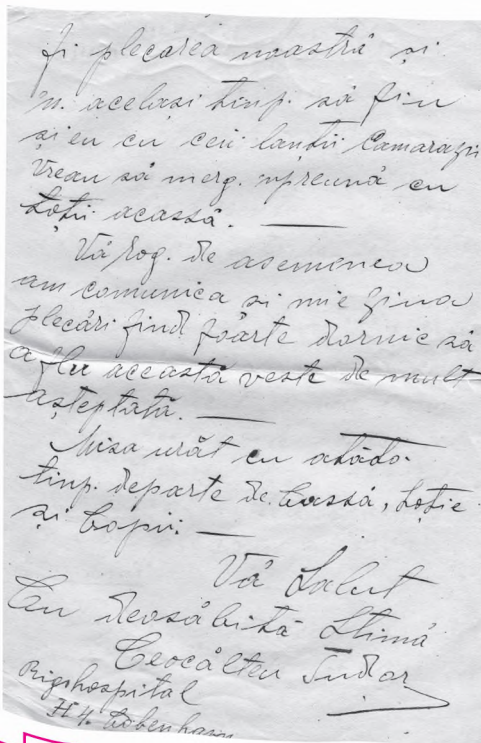 fi plecarea noastră și
în acelasi timp. să fiu
și eu cu ceii lanții Camarazi
Vreau să merg. npreună cu
toții acassă. —
Vă rog. de asemenea
am comunica si mie Ziua
plecări find foarte dornic să
aflu această veste de mult
așteptată. —
Misa urât cu atâdo.
timp. departe de. Cassă, Soție
și Copii: —
Vă Salut
Cu deosăbită Stimă
Ceocâlteu Tudor
Rigshospital